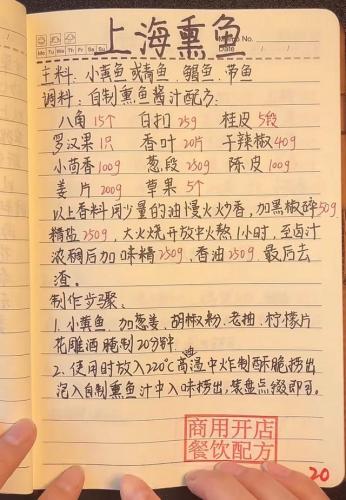 上海熏鱼
Mo Tu We Th Fr Sa Su
Memo No.
Date
主料：小黄鱼或青鱼、鲳鱼、带鱼
调料：自制熏鱼酱汁配方：
八角15个 白扣25g 桂皮5段
罗汉果1只 香叶20片 干辣椒40g
小茴香100g 葱段250g 陈皮100g
姜片200g 草果5个
以上香料用少量的油慢火炒香，加黑椒碎50g
精盐250g，大火烧开放中火熬1小时，至卤汁
浓稠后加味精250g，香油250g最后去
渣。
制作步骤、
1、小黄鱼，加葱姜、胡椒粉、老抽、柠檬片
花雕酒腌制20分钟
2、使用时放入220℃高油温中炸制酥脆捞出
泡入自制熏鱼汁中入味捞出，装盘点缀即可。
商用开店
餐饮配方
20